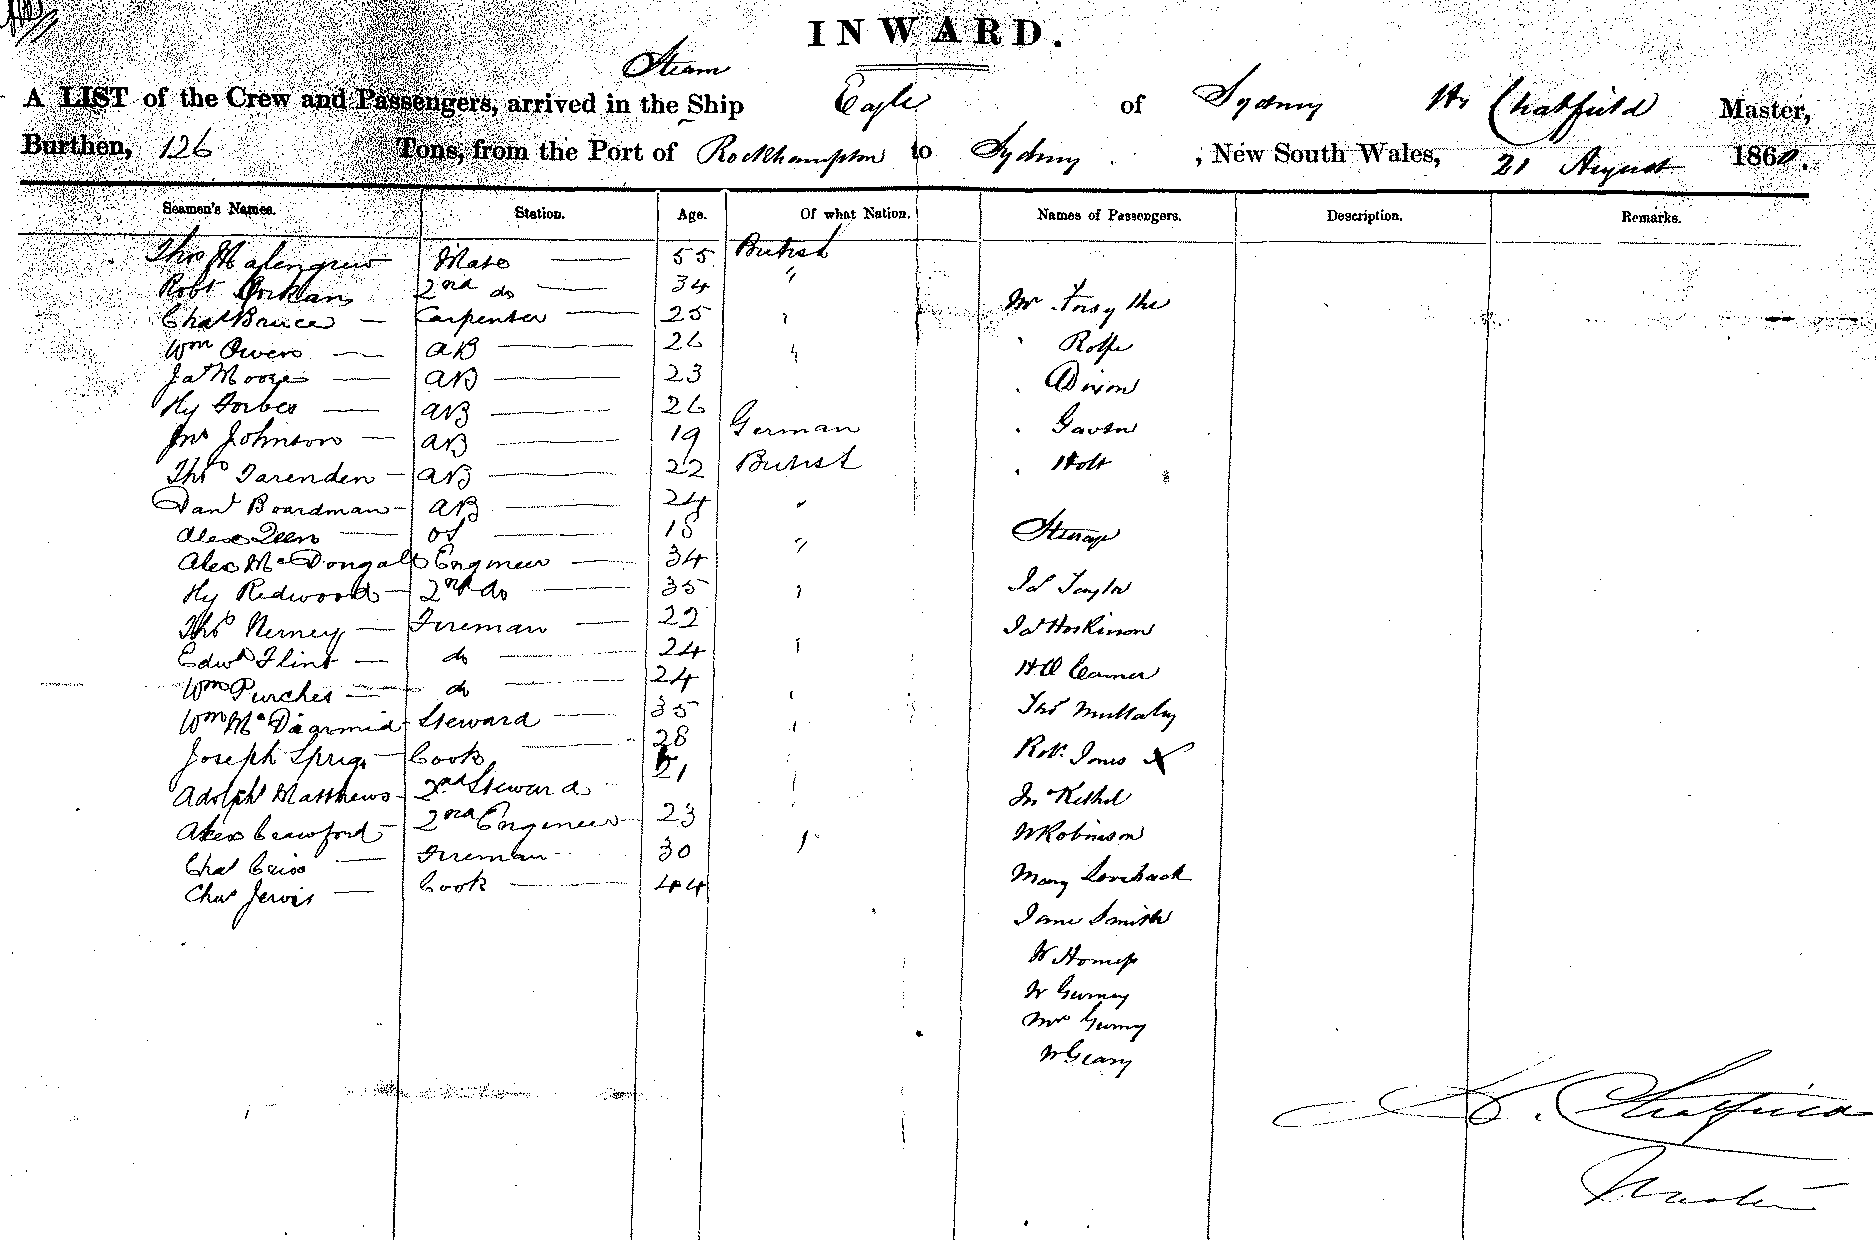 INWARD.
Steam
A LIST of the Crew and Passengers, arrived in the Ship Eagle of Sydney H. Chatfield Master,
Burthen, 126 Tons, from the Port of Rockhampton to Sydney , New South Wales, 21 August 1860.
Seamen's Names. Station. Age. Of what Nation. Names of Passengers. Description. Remarks.
Thos Malengrew Mate 55 British
Robt 2nd do 34 "
Chas Bruce Carpenter 25 "
Mr Forsythe
Wm Owens AB 26 "
Rolfe
Jas Moore AB 23
Dixon
Hy Forbes AB 26
Jno Johnson AB 19 German
Gavin
Thos Tarenden AB 22 British
Holt
Danl Boardman AB 24 "
Alex Queen OS 18 "
Steerage
Alex McDongall Engineer 34
Hy Redwood 2nd do 35 "
Js Taylor
Thos Nerney Fireman 22
Js Hoskinson
Edwd Flint do 24 "
Wm Purches do 24 "
Thos Mullaly
Wm McDiarmid Steward 35 "
Joseph Sprigs Cook 28
Robt Jones X
Adolph Matthews 2nd Steward 21
Jn Kethel
Alex Crawford 2nd Engineer 23
W Robinson
Chas Criss Fireman 30 "
Mary
Chas Jervis Cook 44
Jane Smith
W
W Gurney
Mrs Gurney
W Geary
H. Chatfield
Master